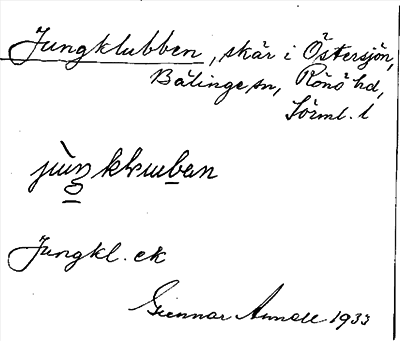 Jungklubben, skär i Östersjön,
Bälinge sn, Rönö hd,
Sörml. l
Jungkl. ek
Gunnar 1933